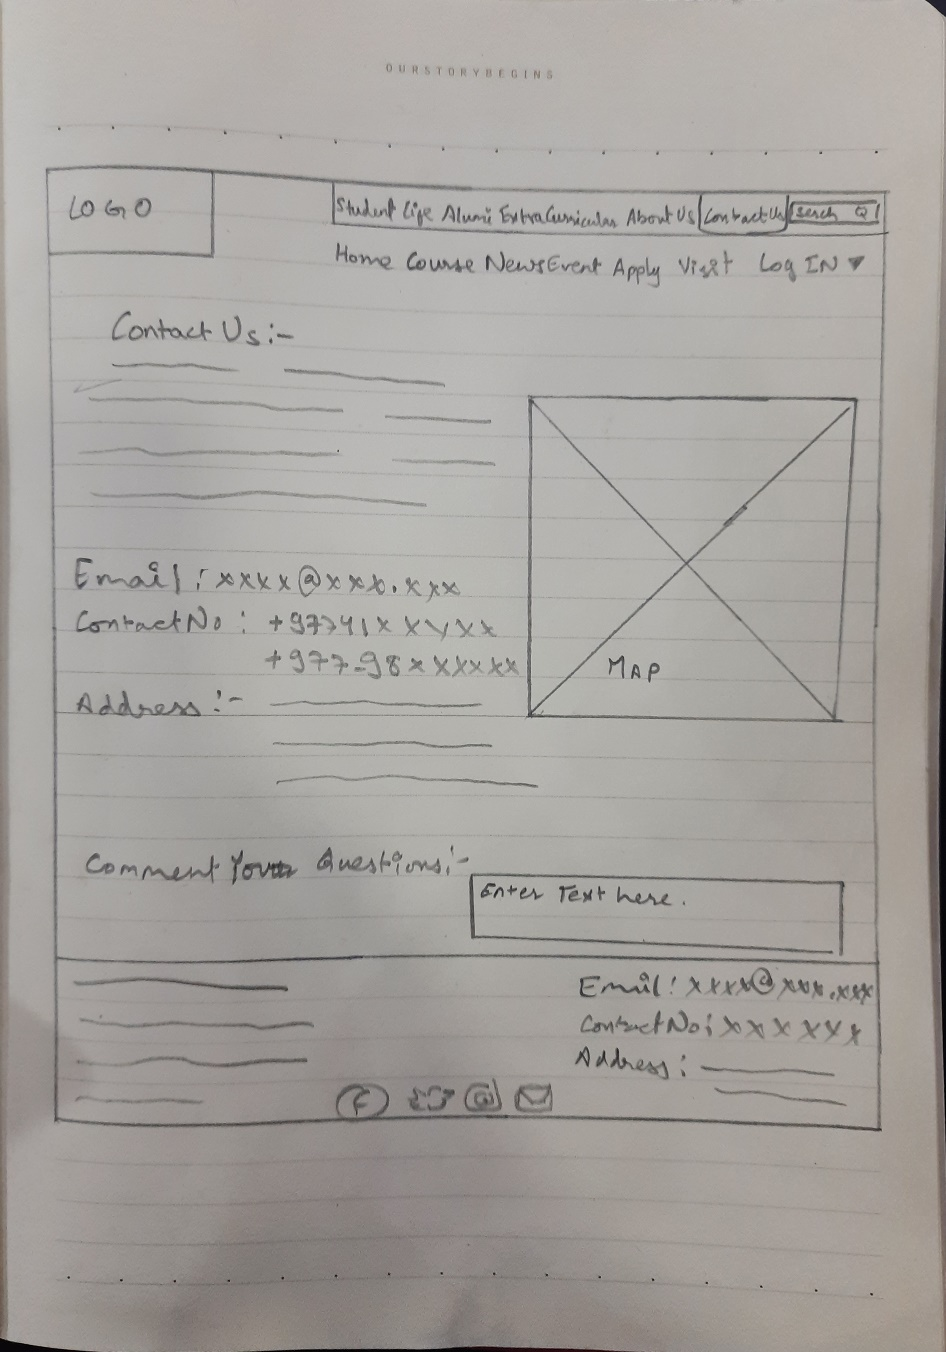 OURSTORYBEGINS
LOGO
Student Life Alumi ExtraCurricular About Us Contact Us Serch
Home Course News Event Apply Visit Log IN ▼
Contact Us :-
Email : xxxx@xxx.xxx
Contact No : +97741xxxxx
+977-98xxxxxx
Address :-
MAP
Comment Your Questions :-
Enter Text here.
Email : xxxx@xxx.xxx
Contact No : xxxxxx
Address :